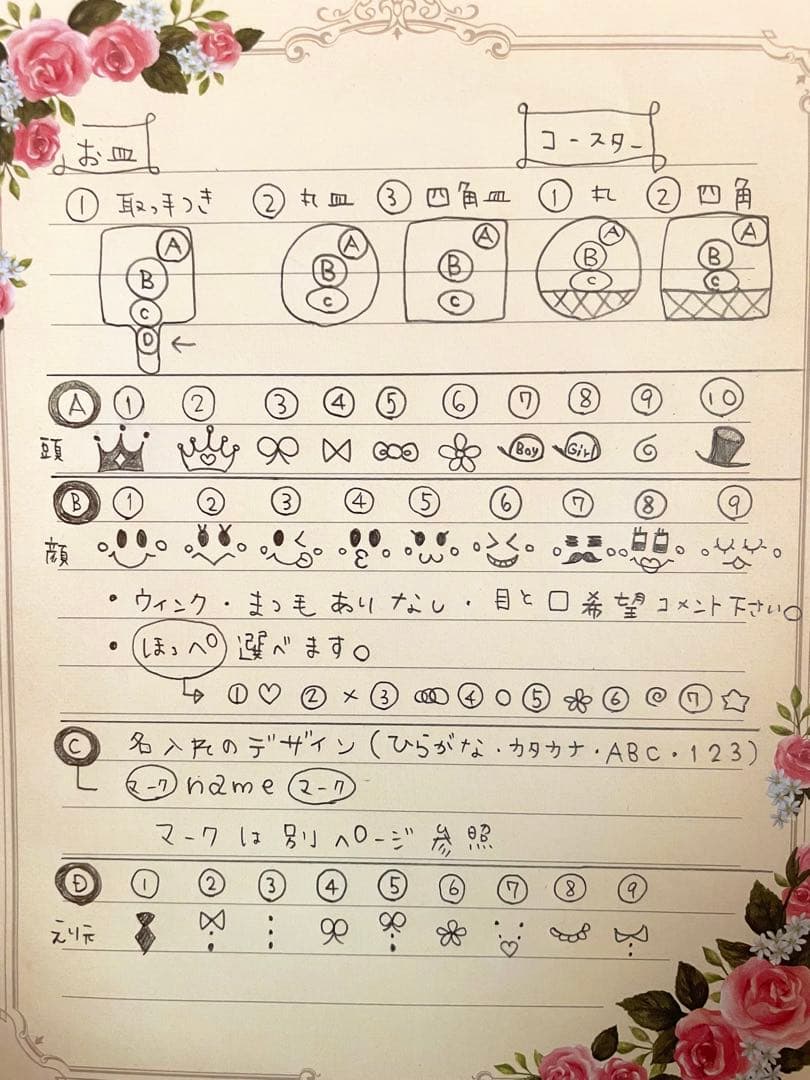 お皿 コースター
① 取っ手つき ② 丸皿 ③ 四角皿 ① 丸 ② 四角
A A A A A
B B B B B
C C C C C
D ←
A ① ② ③ ④ ⑤ ⑥ ⑦ ⑧ ⑨ ⑩
頭 Boy Girl
B ① ② ③ ④ ⑤ ⑥ ⑦ ⑧ ⑨
顔
・ウィンク・まつ毛ありなし・目と口希望コメント下さい。
・ほっぺ選べます。
→ ①♡ ②× ③ ④○ ⑤ ⑥ ⑦☆
C 名入れのデザイン(ひらがな・カタカナ・ABC・123)
マーク name マーク
マークは別ページ参照
D ① ② ③ ④ ⑤ ⑥ ⑦ ⑧ ⑨
えり元